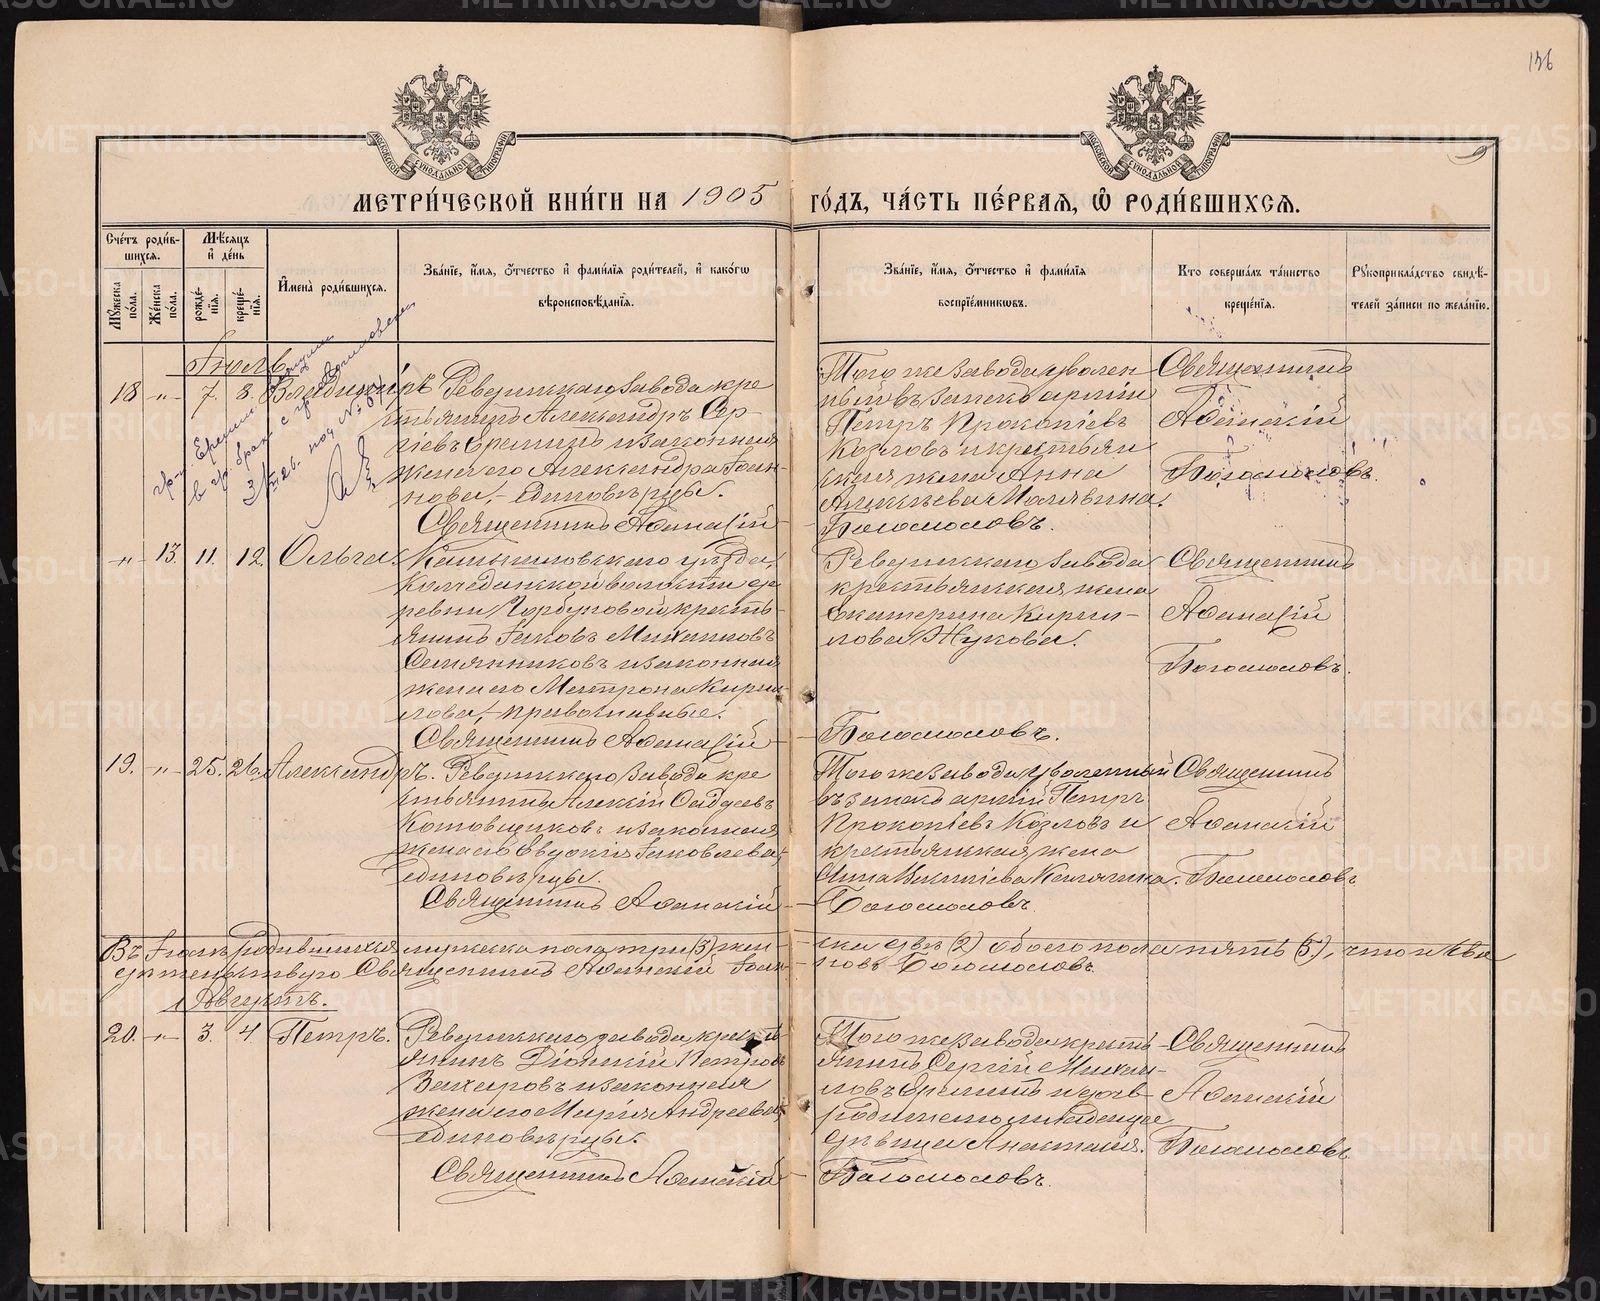 136
9
МОСКОВСКОЙ СУНОДАЛЬНОЙ ТИПОГРАФІИ
МОСКОВСКОЙ СУНОДАЛЬНОЙ ТИПОГРАФІИ
МЕТРИ́ЧЕСКОЙ КНИ́ГИ НА 1905 ГО́ДЪ, ЧА́СТЬ ПЕ́РВАѦ, Ѡ҆ РОДИ́ВШИХСѦ.
Сче́тъ роди́в-
шихсѧ.
Мꙋжеска пола.
Же́нска по́ла.
Мѣ́сѧцъ
и҆ де́нь
рожде́-
нїѧ.
креще́-
нїѧ.
И҆мена̀ роди́вшихсѧ.
Зва́нїе, и҆́мѧ, ѻ҆́тчество и҆ фамі́лїѧ роди́телей, и҆ како́гѡ
вѣроисповѣ́данїѧ.
Зва́нїе, и҆́мѧ, ѻ҆́тчество и҆ фамі́лїѧ
воспрїе́мникѡвъ.
Кто соверша́лъ та́инство
креще́нїѧ.
Рꙋкоприкла́дство свидѣ́-
телей за́писи по жела́нїю.
Іюль
18 -"- 7. 8. Владиміръ
Ревдинскаго завода кре
стьянинъ Александръ Сер-
гіевъ Ереминъ и законная
жена его Александра Іоан-
нова, – единовѣрцы.
Священникъ Аѳанасій
Того же завода уволен
ный въ запасъ арміи
Петръ Прокопіевъ
Козловъ и крестьян
ская жена Анна
Богомоловъ.
Священникъ
Аѳанасій
Богомоловъ.
-"- 13. 11. 12. Ольга.
Камышловскаго уѣзда,
Колчеданской волости де
ревни Горбуновой кресть-
янинъ Іаковъ Михаиловъ
и законная
жена его Матрона Кирил-
лова, – православные.
Священникъ Аѳанасій
Ревдинскаго завода
крестьянская жена
Екатерина Кирил-
лова Жукова.
Богомоловъ.
Священникъ
Аѳанасій
Богомоловъ.
19. -"- 25. 26. Александръ.
Ревдинскаго завода кре
стьянинъ Алексій Ѳаддеевъ
и законная
жена его Евдокія Іаковлева,
единовѣрцы.
Священникъ Аѳанасій
Того же завода уволенный
въ запасъ арміи Петръ
Прокопіевъ Козловъ и
крестьянская жена
Богомоловъ.
Священникъ
Аѳанасій
Богомоловъ
Въ Іюлѣ родившихся мужеска пола три (3) жен-
ска двѣ (2) обоего пола пять (5), что и сви
дѣтельствую Священникъ Аѳанасій Іоан-
новъ Богомоловъ.
Августъ.
20. -"- 3. 4. Петръ.
Ревдинскаго завода кресть
янинъ Діонисій Петровъ
Захаровъ и законная
жена его Марія Андреева,
единовѣрцы.
Священникъ Аѳанасій
Того же завода кресть-
янинъ Сергій Михаи-
ловъ Ереминъ и
дѣвица Анастасія.
Богомоловъ.
Священникъ
Аѳанасій
Богомоловъ.
METRIKI.GASO-URAL.RU